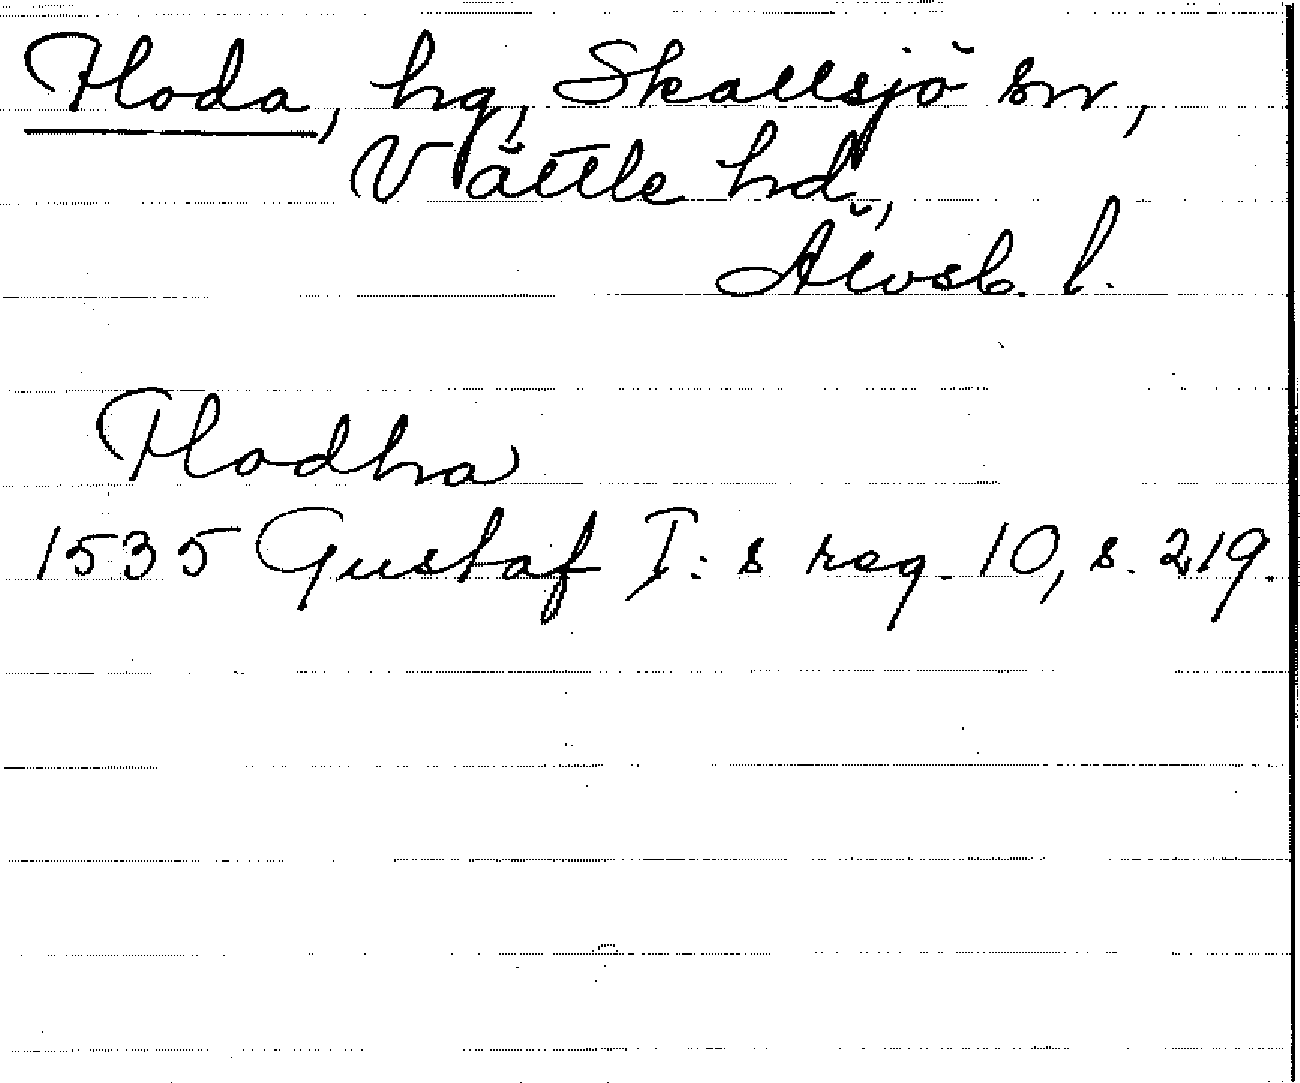 Floda, hg, Skallsjö sn,
Vättle hd,
Älvsb. l.
Flodha
1535 Gustaf I:s reg. 10, s. 219.